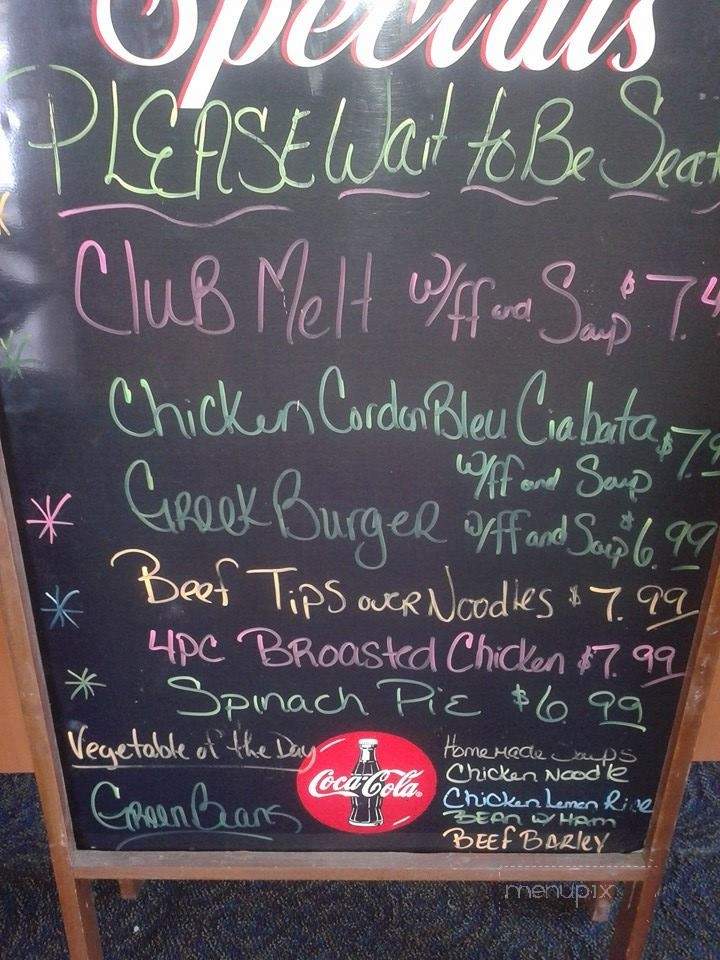 Specials
PLEASE Wait to Be Seat
Club Melt w/ff and Soup $7.4
Chicken Cordon Bleu Ciabata $7.9
w/ff and Soup
Greek Burger w/ff and Soup $6.99
Beef Tips over Noodles $7.99
4PC Broasted Chicken $7.99
Spinach Pie $6.99
Vegetable of the Day
Green Beans
Coca-Cola
Home Made Soups
Chicken Noodle
Chicken Lemon Rice
BEAN W/ HAM
BEEF BARLEY
menupix